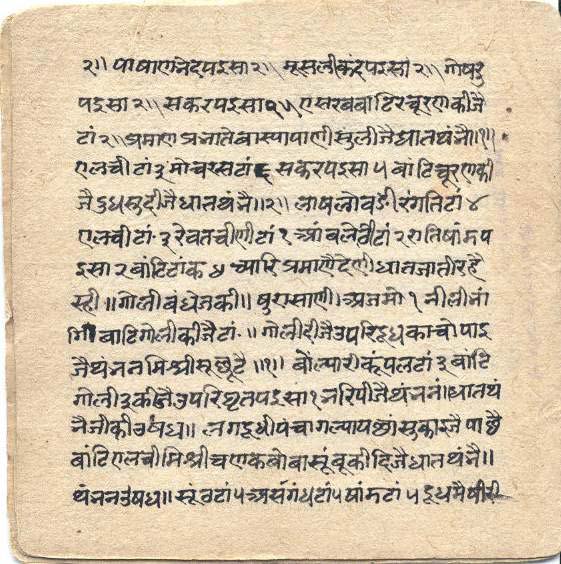 २॥ पाषाणनेदपइसा २॥ मूसलीकंदपइसा २॥ गोषरु
पइसा २॥ सकरपइसा २५ एसरबबाटिरचूरणकीजै
टां २॥ प्रमाण प्रनाते वास्यापाणीसुलीजैधातथंनै॥१॥
एलचीटां ३ मोचरसटां ६ सकरपइसा ५ बांटिचूरणकी
जै दुधसुदीजैधातथंनै॥२॥ लाषलोबडीरंगतिटां ४
एलचीटां ३ रेवतचीणीटां १ आंवले टां २ रातिषांडप
इसा २ बांटिटांक ५ च्यारि प्रमाणैदेणी धातजातीरहै
स्ही॥ गोलीबंधेजकी॥ षुरासाणी अजमो १ नीलीनां
गि बाटिगोलीकीजैटां ॥ गोलीदीजैउपरिदूधकाचोपाइ
जैथंननमिश्रीसूछूटै॥१॥ बांल्यारीकूंपलटां ३ बांटि
गोली ३ कीजैउपरिघृतपइसा १ नरिपीजैथंननं॥ धातथं
नैजीकीउषध॥ लगडूधीपंचागल्यायछांसुकाइजै पाछै
बांटिएलचीमिश्रीचणकबोबासूंबूकीदिजैधातथंनै॥
थंननउषध॥ सूंठटां ५ असगंधटां ५ षांडटां ५ दूधमै